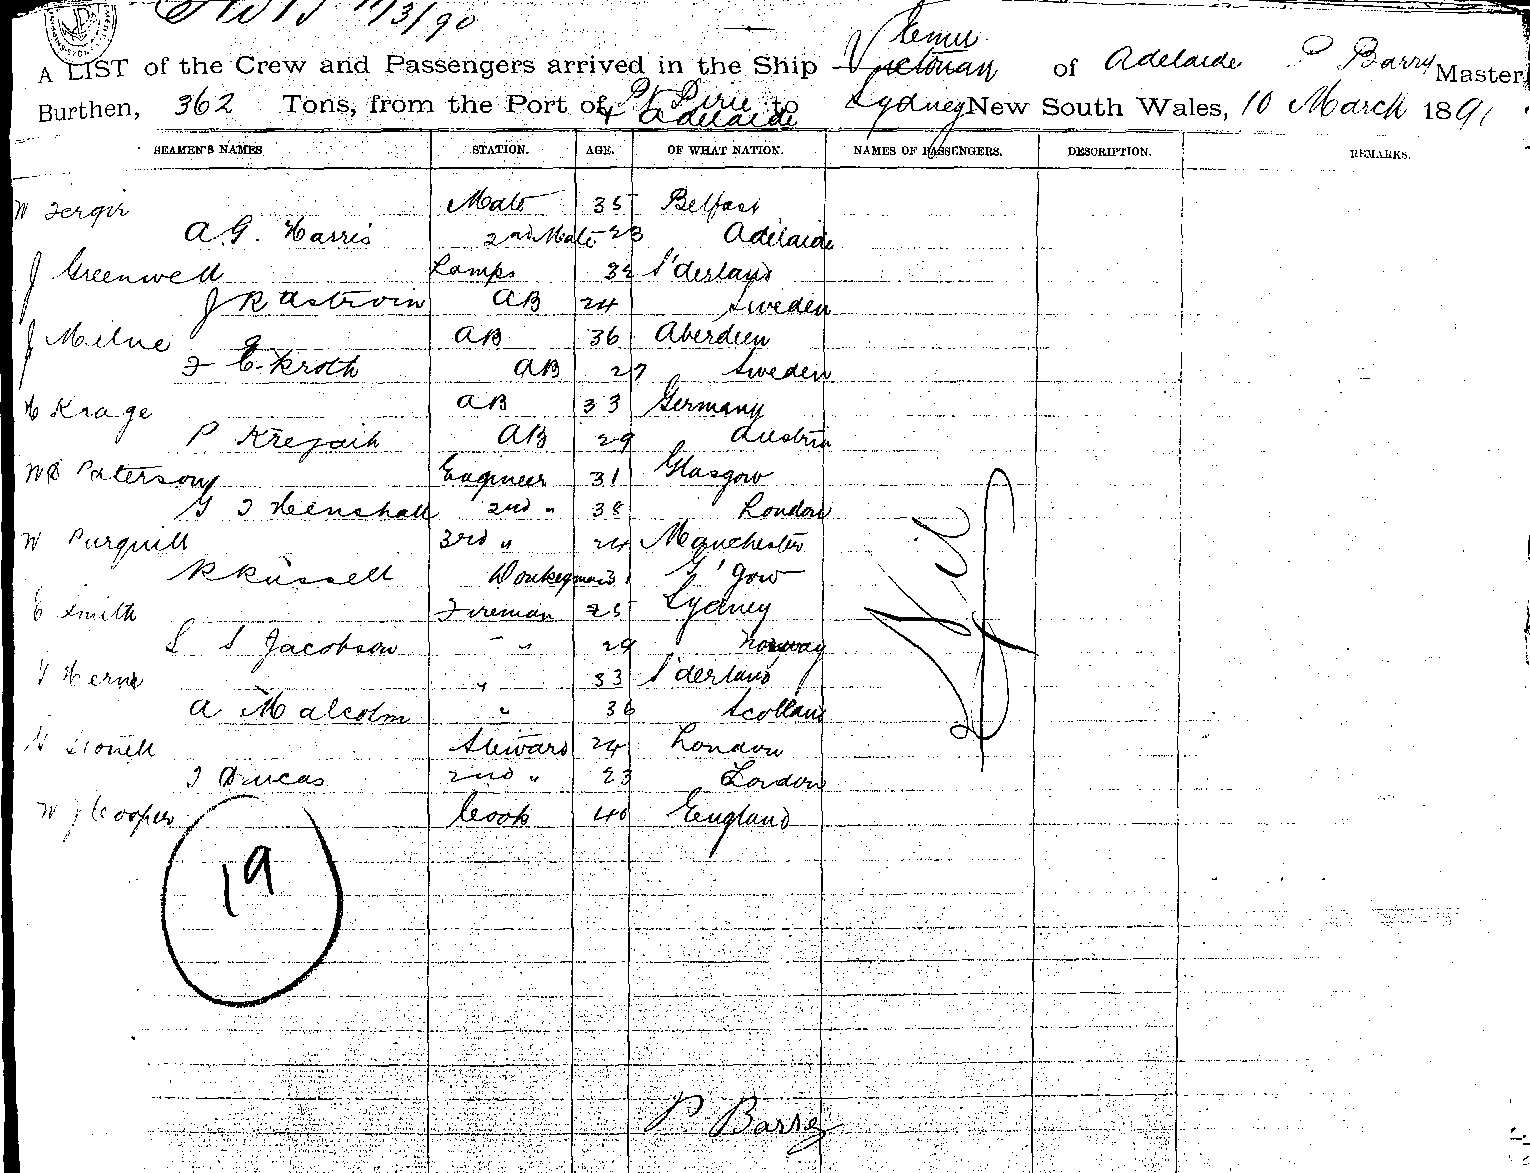 11/3/90
Temu
A LIST of the Crew and Passengers arrived in the Ship Victorian of Adelaide P Barry Master,
Burthen, 362 Tons, from the Port of Pt Pirie & Adelaide to Sydney New South Wales, 10 March 1891
SEAMEN'S NAMES STATION. AGE. OF WHAT NATION. NAMES OF PASSENGERS. DESCRIPTION. REMARKS.
W Mate 35 Belfast
A.G. Harris 2nd Mate 23 Adelaide
J Greenwell Lamps 32 S'derland
J R Astrvin AB 24 Sweden
J Milne AB 36 Aberdeen
C. Kroth AB 27 Sweden
H Krage AB 33 Germany
P AB 29 Austria
W D Paterson Engineer 31 Glasgow
G T Henshall 2nd " 38 London
W Purquill 3rd " 24 Manchester
R Russell Donkeyman G'gow
C Smith Fireman 25 Sydney
S S Jacobson " " 29 Norway
T Herne " 33 S'derland
A Malcolm " 36 Scotland
Steward 24 London
2nd " 23 London
W J Cooper Cook 40 England
Nil
19
P. Barry